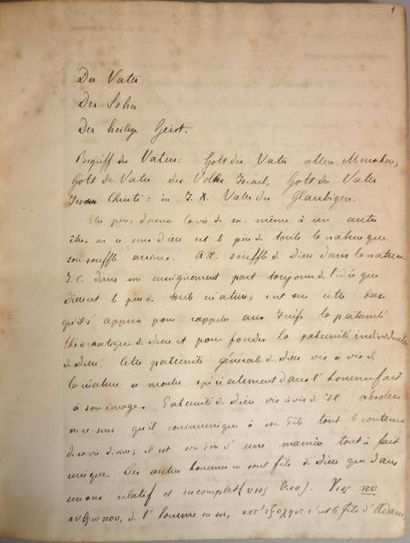 1
Der Vater
Der Sohn
Der heilige Geist.
Begriff des Vaters: Gott der Vater aller Menschen,
Gott der Vater des Volks Israel, Gott der Vater
Jesu Christi: in J. X. Vater der Gläubigen.
Un père donne la vie de soi même à un autre
être, en ce sens Dieu est le père de toute la nature que
son souffle anime. A.T. souffle de Dieu dans la nature.
J.C. dans son enseignement part toujours de l'idée que
Dieu est le père de toute créature, c'est en cette base
qu'il s'appuie pour rappeler aux Juifs la paternité
théocratique de Dieu et pour fonder la paternité individuelle
de Dieu. Cette paternité générale de Dieu vis à vis de
la créature se montre spécialement dans l'homme fait
à son image. Paternité de Dieu vis à vis de absolue
en ce sens qu'il communique à son fils tout le contenu
de sa vie divine, il est son fils d'une manière tout à fait
unique. Les autres hommes ne sont fils de Dieu que dans
un sens relatif et incomplet (υιος θεου). Υιος του
ανθρωπου, de l'homme en soi, κατ' εξοχην c'est le fils d'Adam